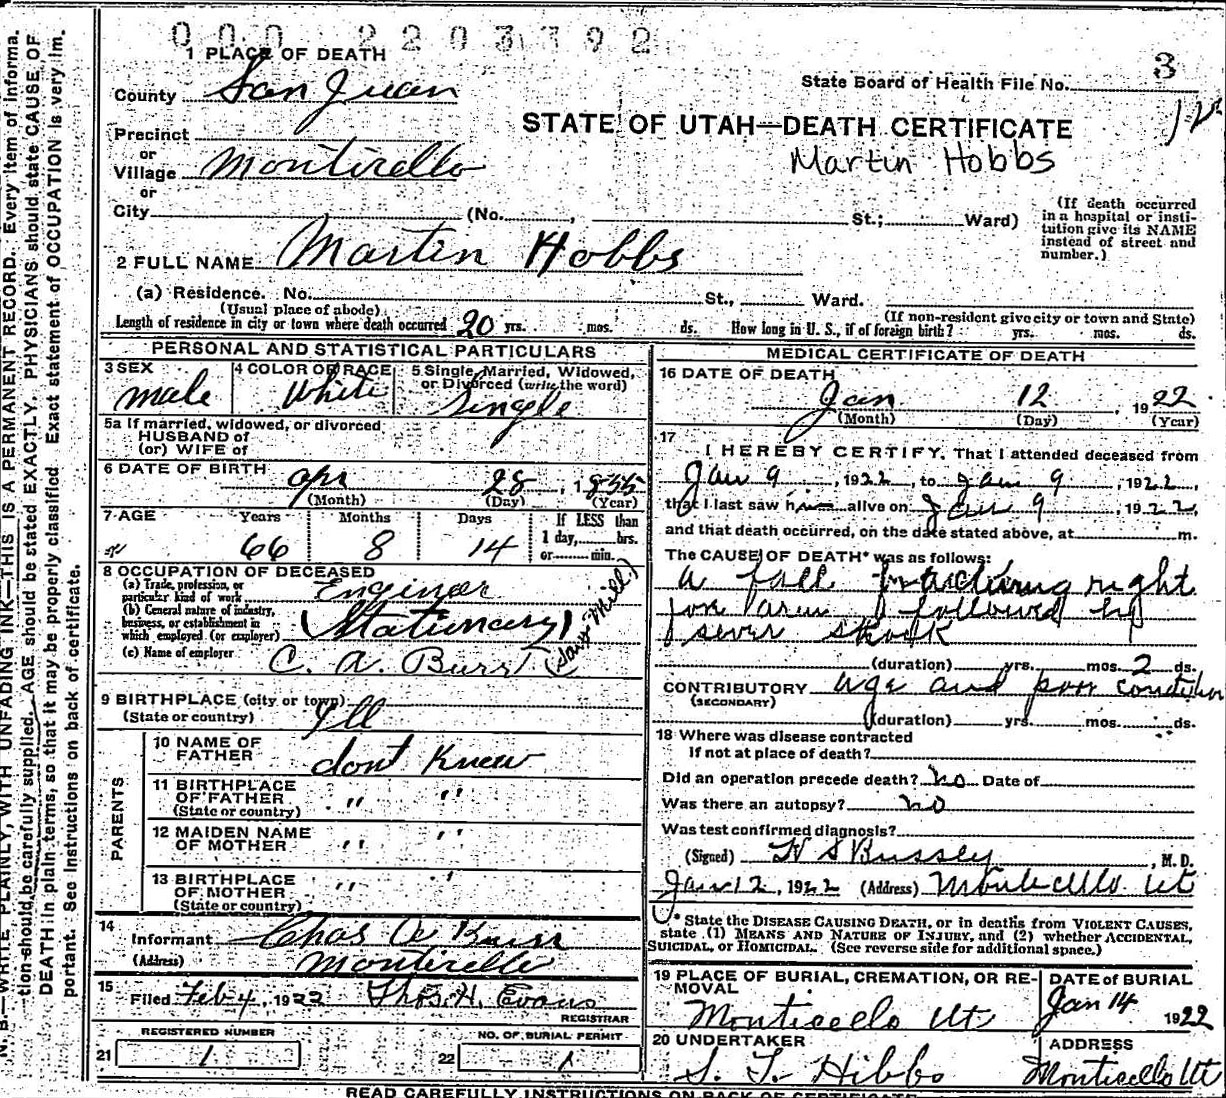 000 2203392
1 PLACE OF DEATH
County San Juan
State Board of Health File No. 3
Precinct
or
Village Monticello
or
City (No. , St.; Ward)
STATE OF UTAH—DEATH CERTIFICATE
Martin Hobbs
(If death occurred
in a hospital or insti-
tution give its NAME
instead of street and
number.)
2 FULL NAME Martin Hobbs
(a) Residence. No. St., Ward.
(Usual place of abode) (If non-resident give city or town and State)
Length of residence in city or town where death occurred 20 yrs. mos. ds. How long in U. S., if of foreign birth? yrs. mos. ds.
PERSONAL AND STATISTICAL PARTICULARS
3 SEX 4 COLOR OR RACE 5 Single, Married, Widowed,
or Divorced (write the word)
male White Single
5a If married, widowed, or divorced
HUSBAND of
(or) WIFE of
6 DATE OF BIRTH
Apr 28, 1855
(Month) (Day) (Year)
7 AGE Years Months Days If LESS than
1 day, hrs.
or min.
66 8 14
8 OCCUPATION OF DECEASED
(a) Trade, profession, or
particular kind of work Enginer
(b) General nature of industry,
business, or establishment in
which employed (or employer) (Stationary)
(Saw Mill)
(c) Name of employer C. A. Burr
9 BIRTHPLACE (city or town)
(State or country) Ill
PARENTS
10 NAME OF
FATHER dont Know
11 BIRTHPLACE
OF FATHER " "
(State or country)
12 MAIDEN NAME
OF MOTHER " "
13 BIRTHPLACE
OF MOTHER " "
(State or country)
14
Informant Chas A Burr
(Address) Monticello
15
Filed Feb 4, 1922 Thos. H. Evans
REGISTRAR
REGISTERED NUMBER NO. OF BURIAL PERMIT
21 1 22 1
MEDICAL CERTIFICATE OF DEATH
16 DATE OF DEATH
Jan 12, 1922
(Month) (Day) (Year)
17
I HEREBY CERTIFY, That I attended deceased from
Jan 9, 1922, to Jan 9, 1922,
that I last saw him alive on Jan 9, 1922,
and that death occurred, on the date stated above, at m.
The CAUSE OF DEATH* was as follows:
a fall fracturing right
for arm followed by
sever shock
(duration) yrs. mos. 2 ds.
CONTRIBUTORY age and poor condition
(SECONDARY)
(duration) yrs. mos. ds.
18 Where was disease contracted
if not at place of death?
Did an operation precede death? no Date of
Was there an autopsy? no
Was test confirmed diagnosis?
(Signed) W S Bussey, M. D.
Jan 12, 1922 (Address) Monticello Ut
* State the DISEASE CAUSING DEATH, or in deaths from VIOLENT CAUSES,
state (1) MEANS AND NATURE OF INJURY, and (2) whether ACCIDENTAL,
SUICIDAL, or HOMICIDAL. (See reverse side for additional space.)
19 PLACE OF BURIAL, CREMATION, OR RE-
MOVAL
Monticello Ut
DATE of BURIAL
Jan 14 1922
20 UNDERTAKER
S. T. Hibbs
ADDRESS
Monticello Ut
READ CAREFULLY INSTRUCTIONS ON BACK OF CERTIFICATE
N. B.—WRITE PLAINLY, WITH UNFADING INK—THIS IS A PERMANENT RECORD. Every item of informa-
tion should be carefully supplied. AGE should be stated EXACTLY. PHYSICIANS should state CAUSE OF
DEATH in plain terms, so that it may be properly classified. Exact statement of OCCUPATION is very im-
portant. See instructions on back of certificate.